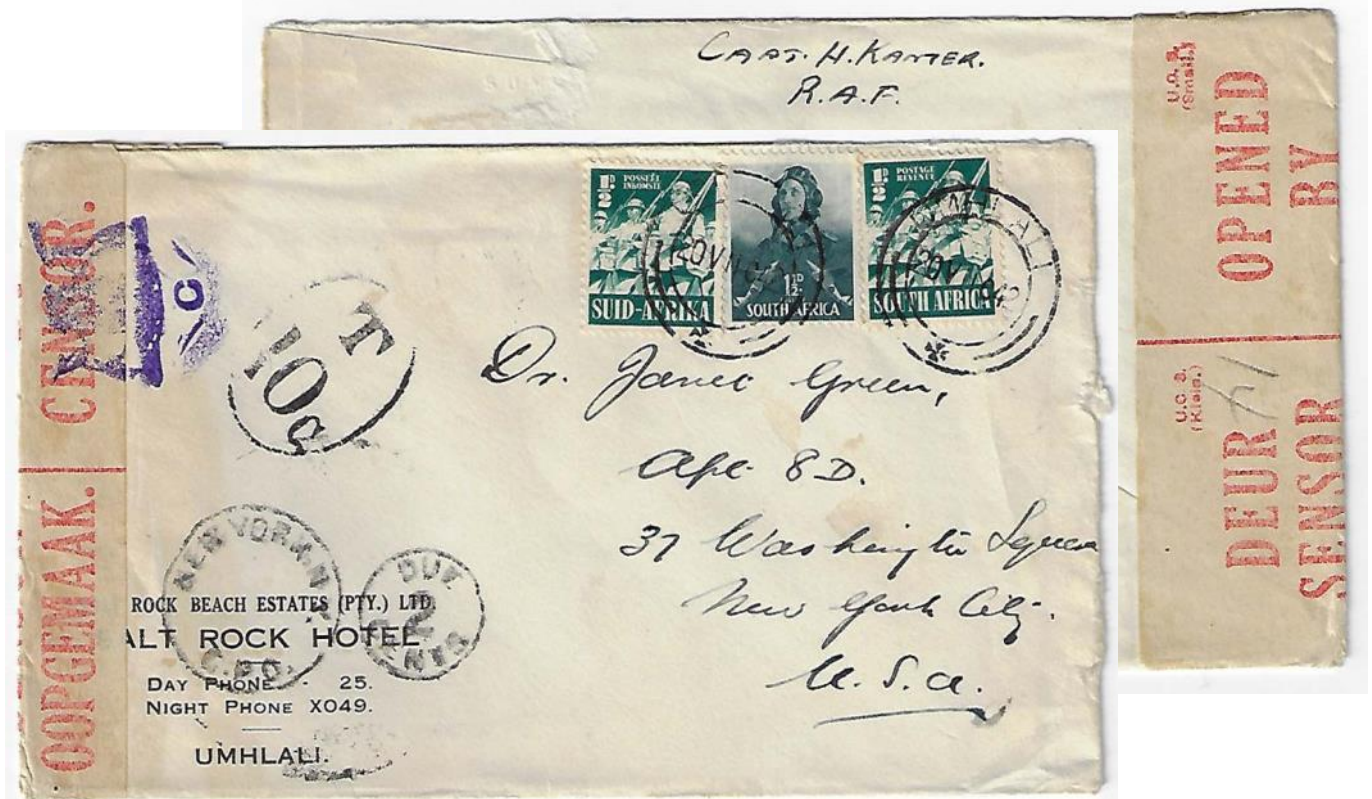 CAPT. H. KANTER.
R.A.F.
U.C. 3.
(Small.)
OPENED
BY
U.C. 3.
(Klein.)
DEUR
SENSOR
CENSOR.
OOPGEMAAK.
C
T
10c
½D
POSSEËL
INKOMSTE
SUID-AFRIKA
1½D
SOUTH AFRICA
½D
POSTAGE
REVENUE
SOUTH AFRICA
UMHLALI
20 VII 942
Dr. Janet Green,
Apt 8D.
37 Washington Square
New York City.
U.S.A.
NEW YORK, N.Y.
G.P.O.
DUE
2
CENTS
ROCK BEACH ESTATES (PTY.) LTD.
ALT ROCK HOTEL
DAY PHONE - 25.
NIGHT PHONE X049.
UMHLALI.